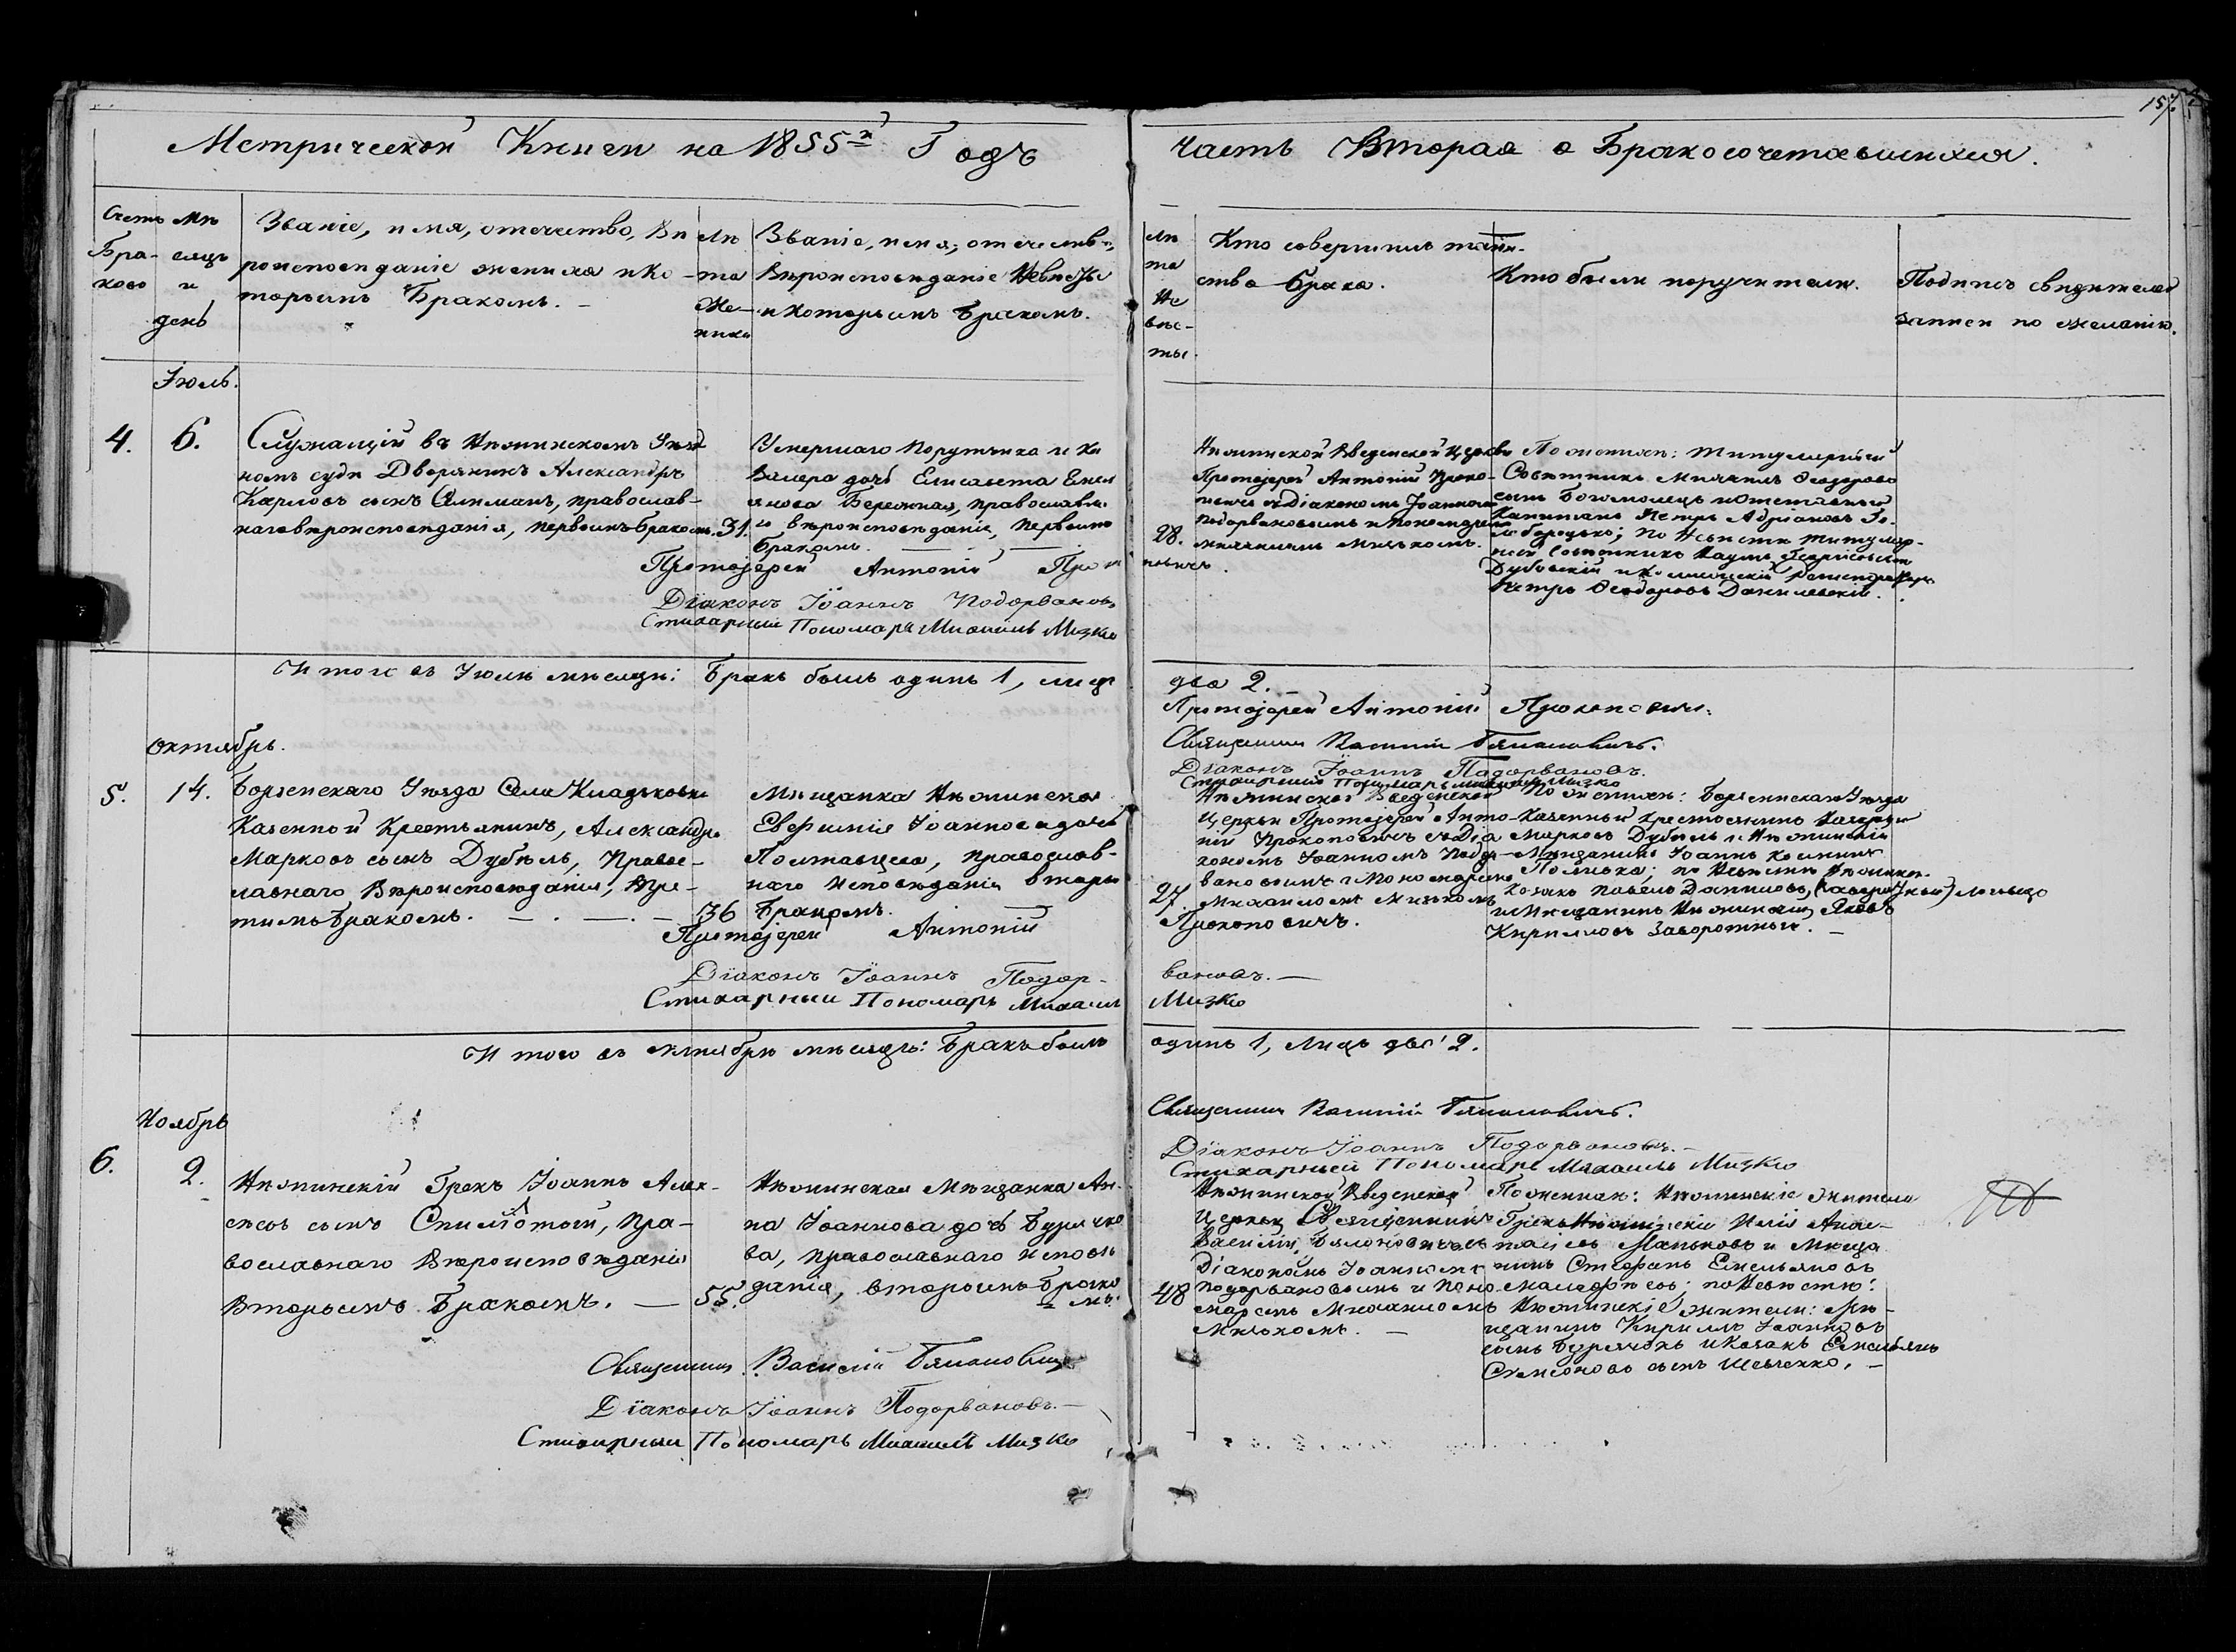 157.
Метрической Книги на 1855й Годъ
Часть Вторая о Бракосочетавшихся.
Счетъ Бра- ковъ
Мѣ сяцъ и день
Званіе, имя, отечество, вѣ
роисповѣданіе жениха и ко-
торымъ Бракомъ. —
Лѣ та Же- ниха
Званіе, имя, отечеств.,
Вѣроисповѣданіе Невѣсты
и Которымъ Бракомъ.
лѣ та Не вѣс- ты.
Кто совершилъ таин-
ство брака.
Кто были поручители.
Подпись свидѣтелей
записи по желанію.
Іюль.
4. 6.
Служащій въ Нѣжинскомъ Уѣзд
номъ судѣ Дворянинъ Александръ
Карловъ сынъ православ-
наго вѣроисповѣданія, первымъ Бракомъ.
31.
Умершаго Порутчика и Ка
валера дочь Елисавета Емел
янова Бережная, православна
го вѣроисповѣданія, первымъ
Бракомъ.
28.
Нѣжинской Введенской Церкви
Протоіерей Антоній Проко-
повичъ съ Діакономъ Іоанномъ
Подорвановымъ и пономаремъ
Мизькомъ.
По женихѣ: Титулярный
Совѣтникъ Михаилъ Ѳеодоровъ
сынъ Богомолецъ и Отставный
Капитанъ Петръ Адріановъ Го-
лобородько; по Невѣстѣ титуляр-
ный Совѣтникъ Наумъ
Дубовскій и Колежскій Регистраторъ
Петръ Ѳеодоровъ Данилевскій.
Протоіерей Антоній Прокоповичъ.
Діаконъ Іоаннъ Подорвановъ
Стихарный Пономарь Михаилъ Мизко
Итого въ Іюлѣ мѣсяцѣ: Бракъ былъ одинъ 1, лицъ два 2.
Протоіерей Антоній Прокоповичъ.
Священникъ Василій Бяноновичъ.
Діаконъ Іоаннъ Подорвановъ.
Стихарный Пономарь Михаилъ Мизко
Октябрь.
5. 14.
Борзенскаго Уѣзда Села
Казенной Крестьянинъ, Александръ
Марковъ сынъ Дубѣль, Правос-
лавнаго Вѣроисповѣданія, Тре-
тимъ Бракомъ. —
36
Мѣщанка Нѣжинская
Евфимія Іоаннова дочь
Полтавцева, православ-
наго Исповѣданія вторы
Бракомъ.
27.
Нѣжинской Введенской
Церкви Протоіерей Анто-
ній Прокоповичъ съ Діа
кономъ Іоанномъ Подор-
вановымъ и Пономаремъ
Михаиломъ Мизькомъ
По женихѣ: Борзенскаго Уѣзда
Казенный Крестьянинъ
Марковъ Дубѣль и Нѣжинскій
Мѣщанинъ Іоаннъ
по Невѣстѣ Нѣжинск.
Козакъ Павелъ Даниловъ
и Мѣщанинъ Нѣжинскій Яковъ
Кирилловъ Заворотный. —
Протоіерей Антоній Прокоповичъ.
Діаконъ Іоаннъ Подор- вановъ. —
Стихарный Пономарь Михаилъ Мизко
Итого въ октябрѣ мѣсяцѣ: Бракъ былъ одинъ 1, Лицъ два 2.
Священникъ Василій Бяноновичъ.
Діаконъ Іоаннъ Подорвановъ. —
Стихарный Пономарь Михаилъ Мизко
Ноябрь
6. 2.
Нѣжинскій Грекъ Іоаннъ Алек-
сѣевъ сынъ Пра-
вославнаго Вѣроисповѣданія
Вторымъ Бракомъ. —
55.
Нѣжинская Мѣщанка Ан-
на Іоаннова дочь Бурячко
ва, православнаго Исповѣ
данія, вторымъ Брако
мъ.
48
Нѣжинской Введенской
Церкви Священникъ
Василій Бяноновичъ съ
Діакономъ Іоанномъ
Подорвановымъ и Поно
маремъ Михаиломъ
Мизькомъ. —
По женихѣ: Нѣжинскіе жители
Грекъ Нѣжинскій Илія Анас-
тасіевъ Маньковъ и Мѣща
нинъ Стефанъ Емельяновъ
по Невѣстѣ:
Нѣжинскіе жители: Мѣ-
щанинъ Кириллъ Іоанновъ
сынъ Бурячокъ и Козакъ Емельянъ
Симеоновъ сынъ Шевченко. —
Священникъ Василій Бяноновичъ
Діаконъ Іоаннъ Подорвановъ. —
Стихарный Пономарь Михаилъ Мизко